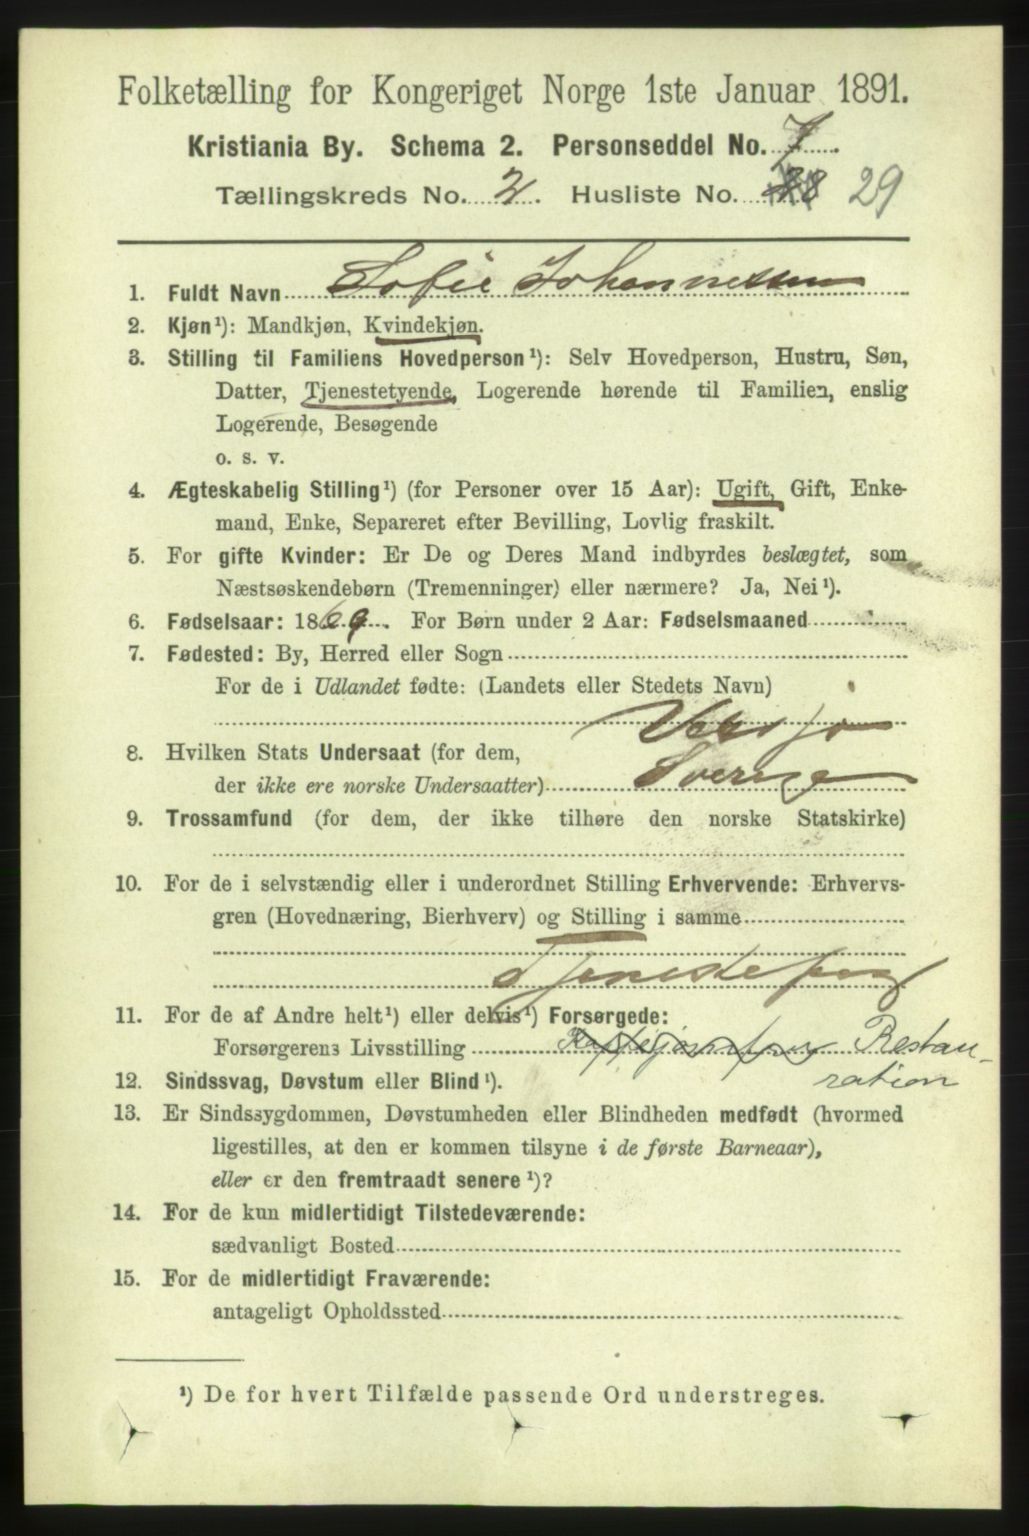 Folketælling for Kongeriget Norge 1ste Januar 1891.
Kristiania By. Schema 2. Personseddel No. 7.
Tællingskreds No. 2. Husliste No. 28 29
1. Fuldt Navn Sofie Johannessen
2. Kjøn¹): Mandkjøn, Kvindekjøn.
3. Stilling til Familiens Hovedperson¹): Selv Hovedperson, Hustru, Søn,
Datter, Tjenestetyende, Logerende hørende til Familien, enslig
Logerende, Besøgende
o. s. v.
4. Ægteskabelig Stilling¹) (for Personer over 15 Aar): Ugift, Gift, Enke-
mand, Enke, Separeret efter Bevilling, Lovlig fraskilt.
5. For gifte Kvinder: Er De og Deres Mand indbyrdes beslægtet, som
Næstsøskendebørn (Tremenninger) eller nærmere? Ja, Nei¹).
6. Fødselsaar: 1869. For Børn under 2 Aar: Fødselsmaaned
7. Fødested: By, Herred eller Sogn
For de i Udlandet fødte: (Landets eller Stedets Navn)
8. Hvilken Stats Undersaat (for dem,
der ikke ere norske Undersaatter) Sverige
9. Trossamfund (for dem, der ikke tilhøre den norske Statskirke)
10. For de i selvstændig eller i underordnet Stilling Erhvervende: Erhvervs-
gren (Hovednæring, Bierhverv) og Stilling i samme
Tjenestepige
11. For de af Andre helt¹) eller delvis¹) Forsørgede:
Forsørgerens Livsstilling Restau-
ration
12. Sindssvag, Døvstum eller Blind¹).
13. Er Sindssygdommen, Døvstumheden eller Blindheden medfødt (hvormed
ligestilles, at den er kommen tilsyne i de første Barneaar),
eller er den fremtraadt senere¹)?
14. For de kun midlertidigt Tilstedeværende:
sædvanligt Bosted
15. For de midlertidigt Fraværende:
antageligt Opholdssted
¹) De for hvert Tilfælde passende Ord understreges.